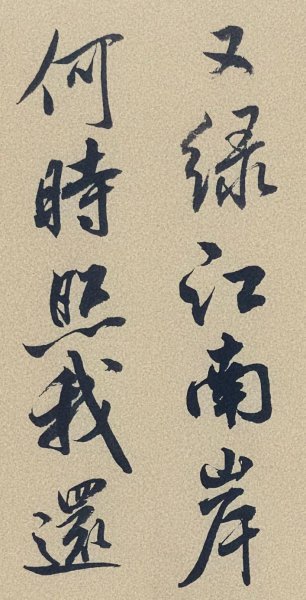 又绿江南岸
何時照我還